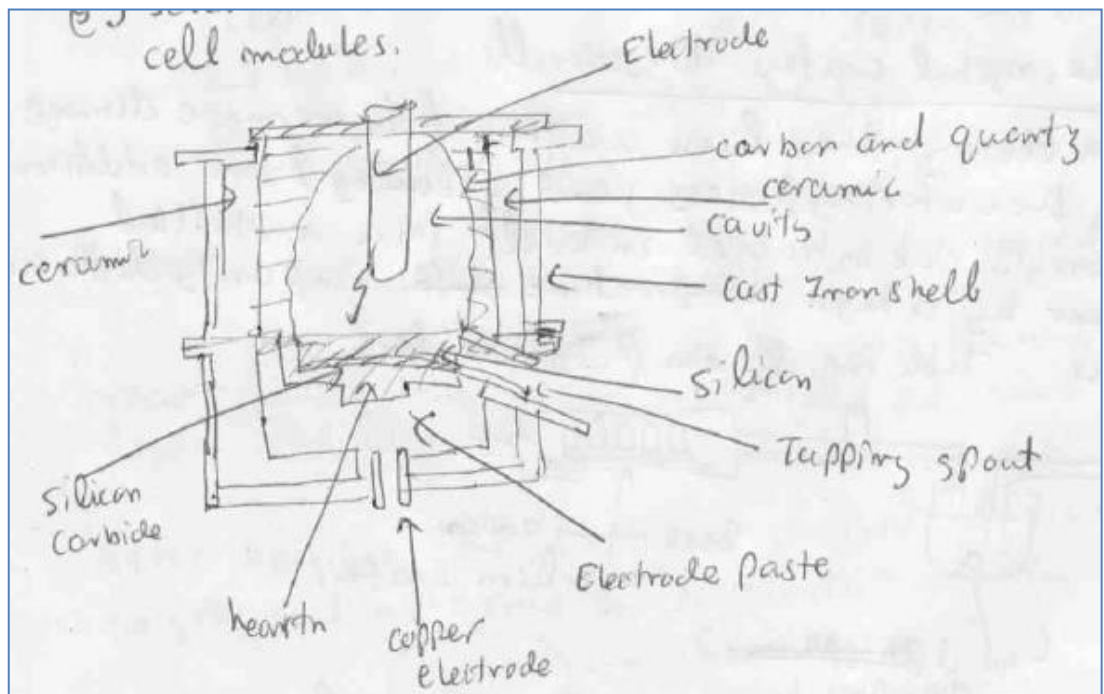 cell modules.
Electrode
carbon and quartz
ceramic
cavity
ceramic
cast Iron shell
silicon
Tapping spout
silicon
carbide
Electrode paste
hearth
copper
electrode